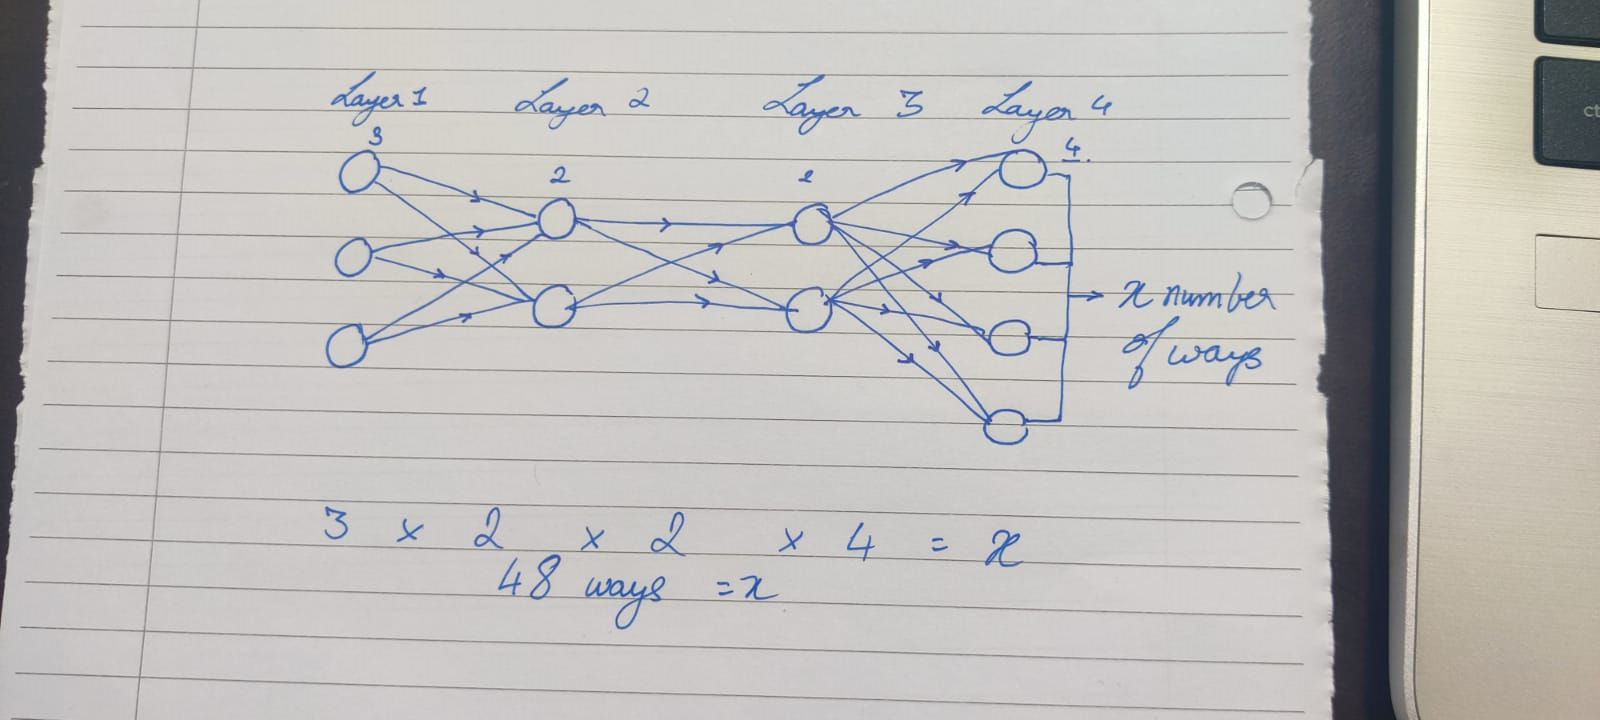 Layer 1 Layer 2 Layer 3 Layer 4
3 2 2 4.
x number
of ways
3 x 2 x 2 x 4 = x
48 ways = x
ct